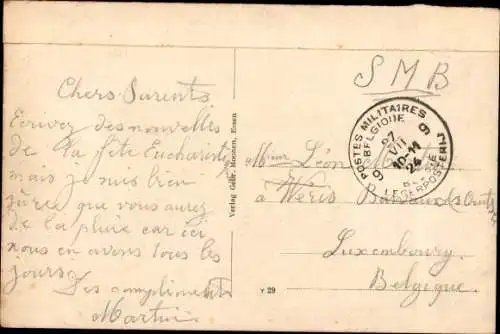 Chers Parents
Ecrivez des nouvelles
de la fête Eucharis
mais je suis bien
que vous aurez
de la pluie car ici
nous en avons tous les
jours.
Des compliments
Martin
Verlag Gebr. Moonen, Essen
Y 29
SMB
POSTES MILITAIRES
BELGIQUE 9
27
VII
10-11
24
BELGIE
9 LEGERPOSTERIJ
Léon
à Weris
Luxembourg
Belgique